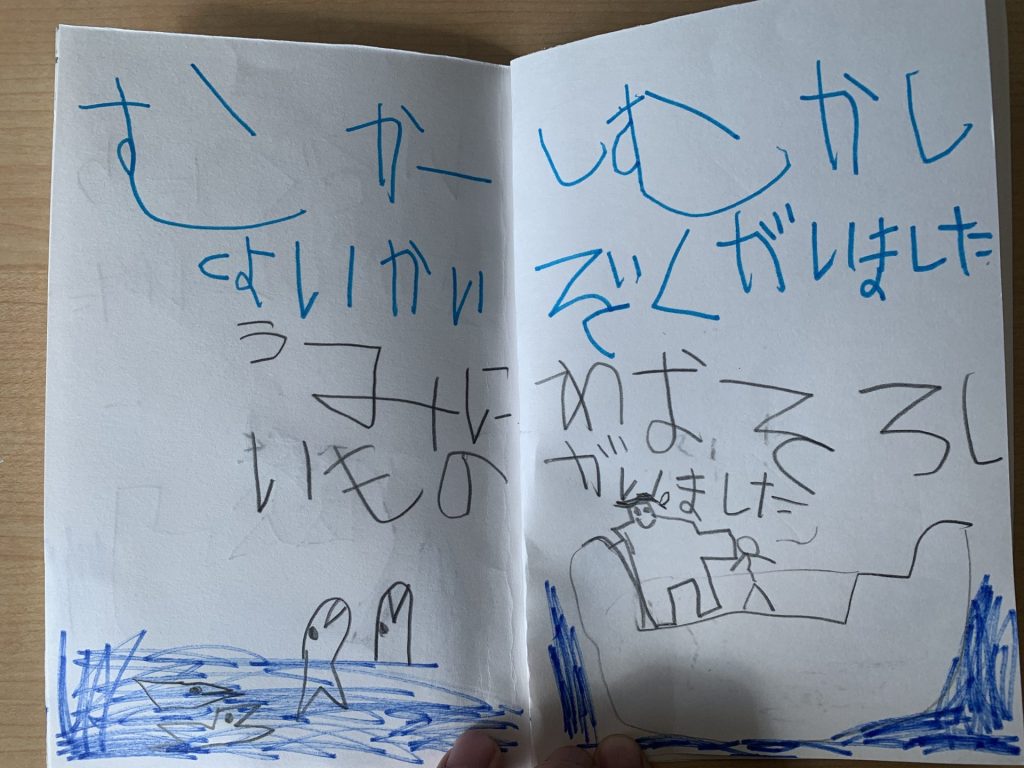 むかーしむかし
つよいかいぞくがいました
うみにわおそろし
いものがいました